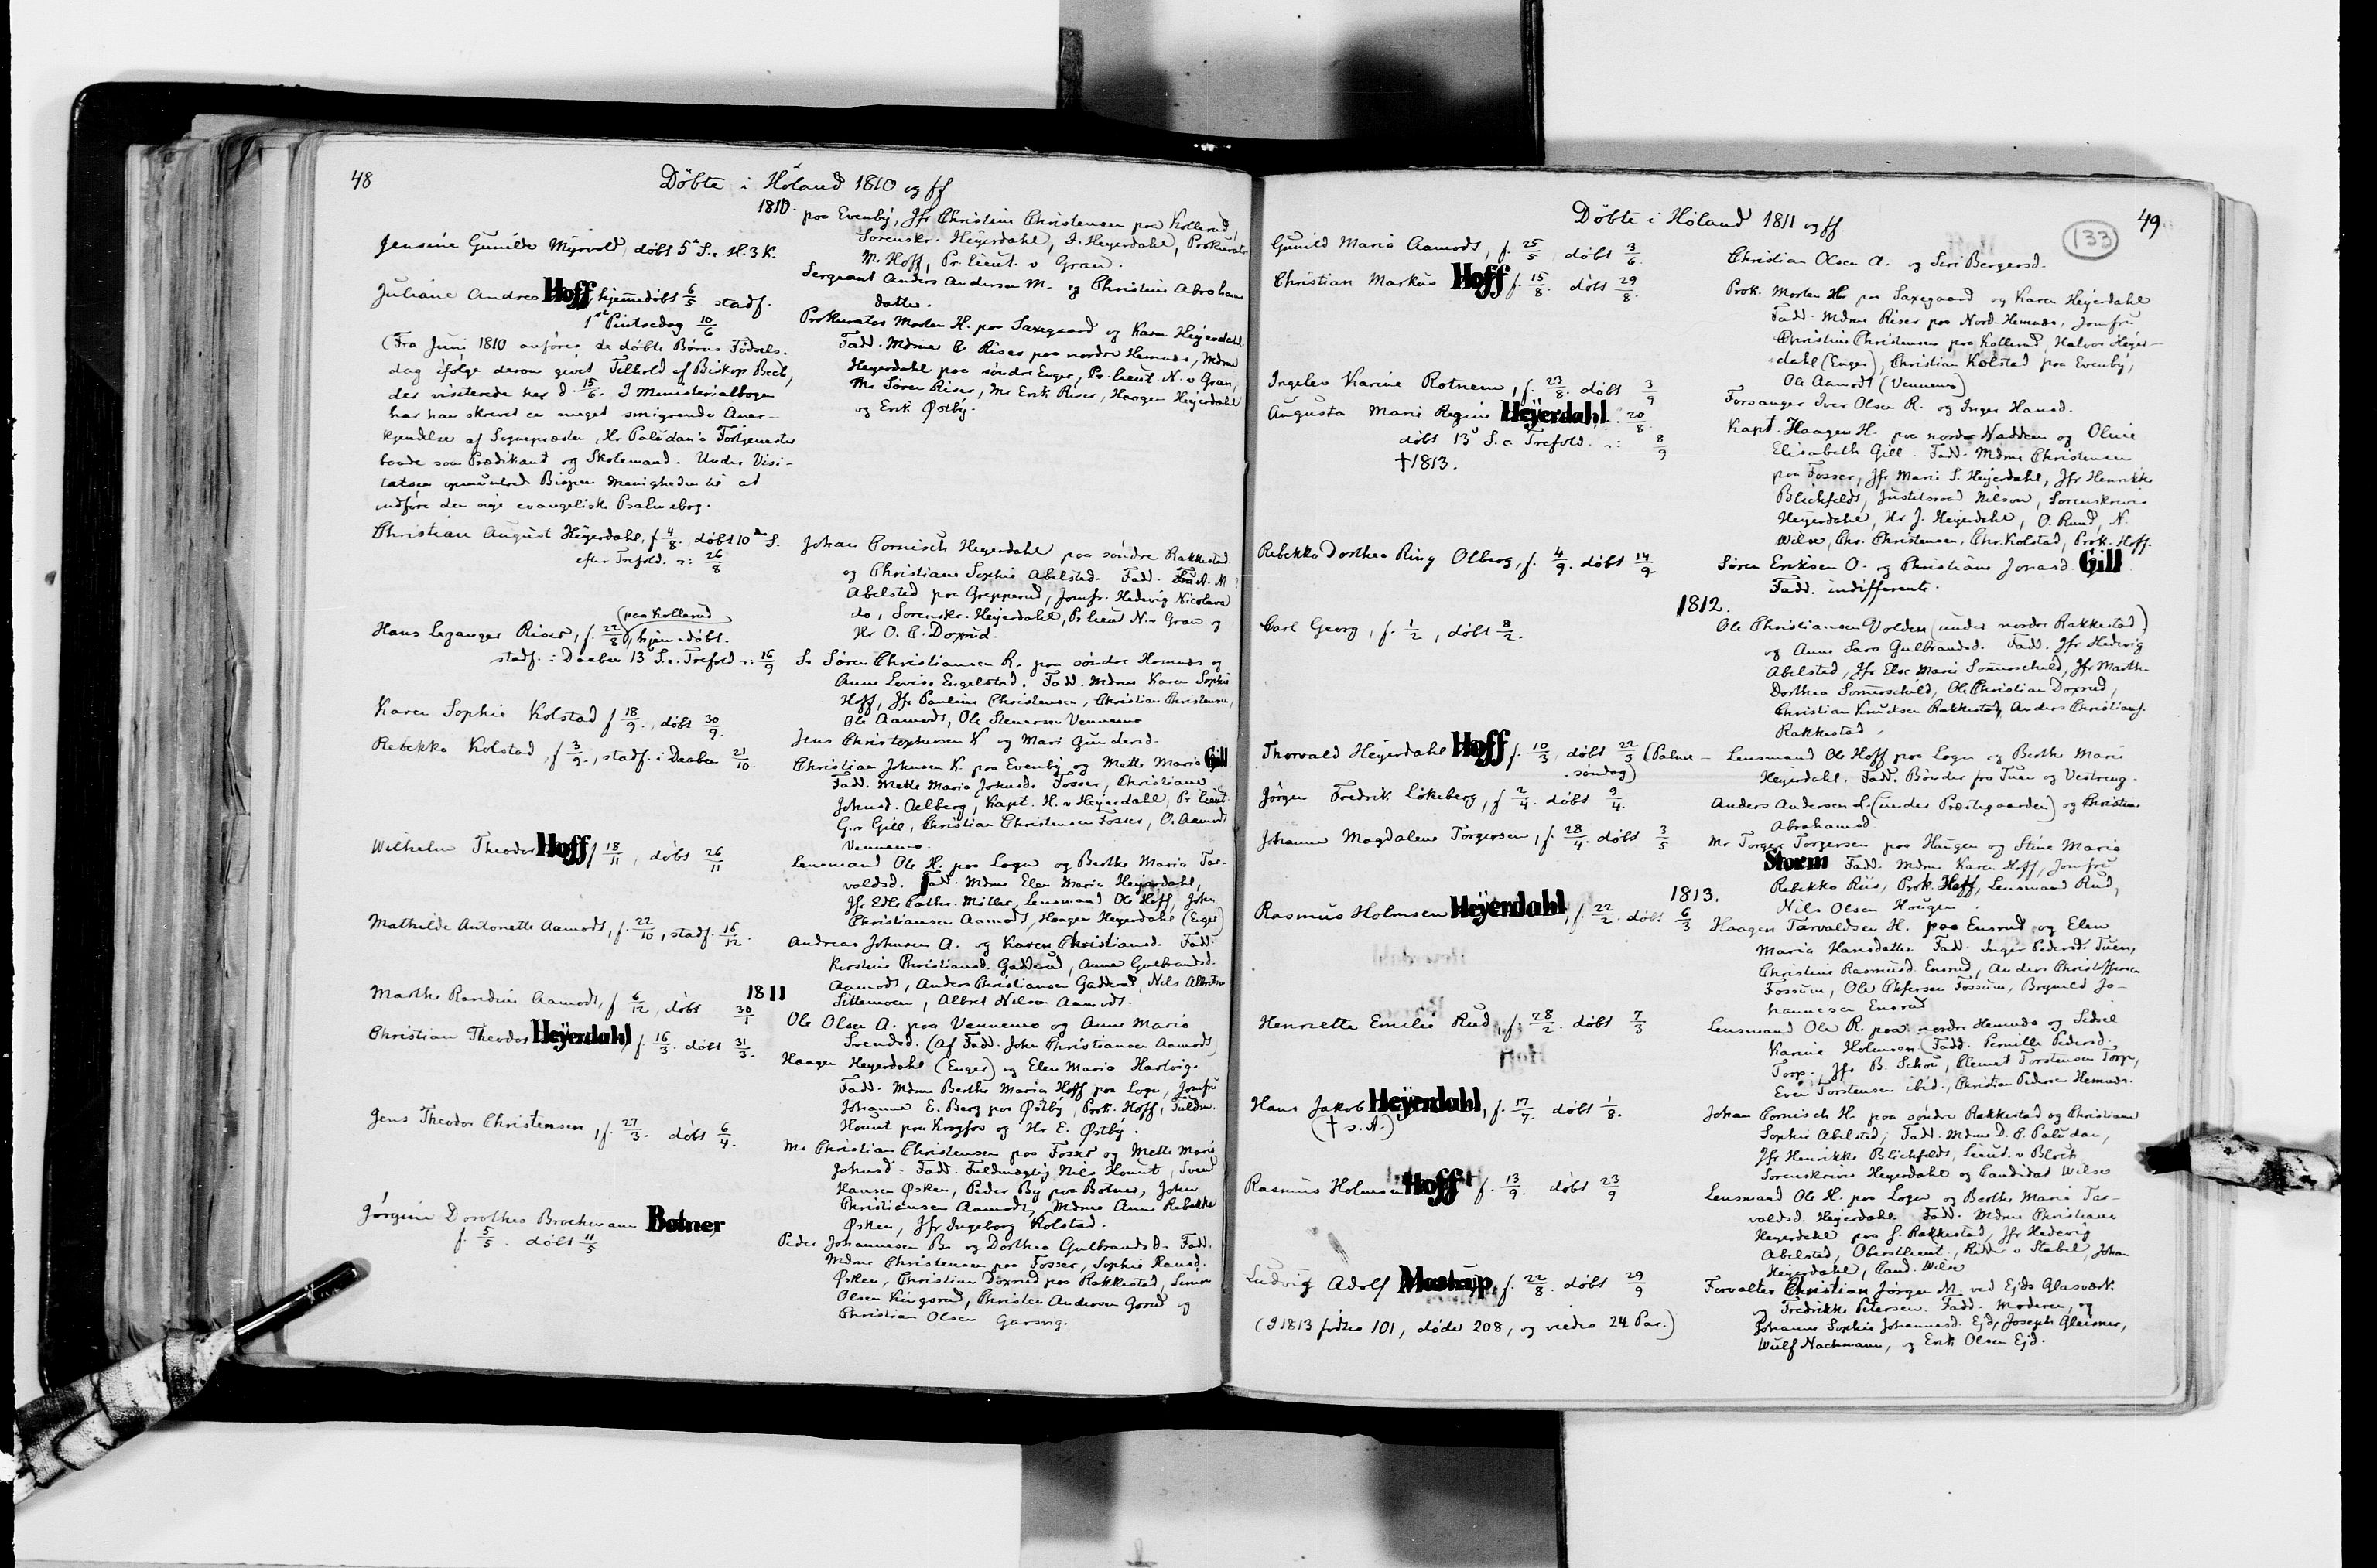 48
Döbte i Höland 1810 og ff
1810.
Jensine Gunilde Myrvold, döbt 5te S. e. H. 3 K.
Juliane Andrea Hoff, hjemmedöbt 6/5 stadf.
1ste Pintsedag 10/6
(Fra Juni 1810 anföres de döbte Börns Födsels-
dag ifölge derom givet Tilhold af Biskop Bech,
der visiterede her d. 15/6. I Ministerialbogen
har han skrevet en meget smigrende Aner-
kjendelse af Sognepresten, Hr Paludan's Fortjenester
baade som Prædikant og Skolemand. Under Visi-
tatsen opmuntrede Bispen Menigheden til at
indföre den nye evangeliske Psalmebog.
Christian August Heyerdahl, f 4/8. döbt 10de S.
efter Trefold. ɔ: 26/8
(paa Kollerud
Hans Lezanger Riser, f. 22/8, hjemmedöbt.
stadf. i Daaben 13 S. e. Trefold ɔ: 16/9
Karen Sophie Kolstad f 18/9., döbt 30/9.
Rebekka Kolstad, f 3/9., stadf. i Daaben 21/10.
Wilhelm Theodor Hoff f 18/11, döbt 26/11
Mathilde Antonette Aamodt, f. 22/10, stadf. 16/12.
1811
Marthe Randine Aamodt, f 6/12, döbt 30/1
Christian Theodor Heyerdahl, f 16/3. döbt 31/3.
Jens Theodor Christensen, f. 27/3. döbt 6/4.
Jörgine Dorothea Brochmann Botner
f. 5/5. döbt 11/5
paa Evenby, Jfr Christine Christensen paa Kollerud,
Sorenskr. Heyerdahl, J. Heyerdahl, Prokurator
M. Hoff, Pr. Lieut. v Gran.
Sergeant Anders Andersen M. og Christine Abrahams
datter.
Prokurator Morten H. paa Saxegaard og Karen Heyerdahl
Fadd. Mdme C Riser paa nordre Hemnæs, Mdme
Heyerdahl paa söndre Enger, Pr. Lieut. N. v Gran,
Mr Sören Riser, Mr Erik Riser, Haagen Heyerdahl
og Erik Østby.
Johan Cornisch Heyerdahl paa söndre Rakkestad
og Christiane Sophie Abelsted. Fadd. Fru A. M
Abelsted paa Grepperud, Jomfr. Hedevig Nicolava
do, Sorenskr. Heyerdahl, Pr lieut N. v Gran og
Hr O. C. Doxrud.
Sr Sören Christiansen R. paa söndre Hemnæs og
Anne Lovise Engelstad. Fadd. Mdme Karen Sophie
Hoff, Jfr Pauline Christensen, Christian Christensen,
Ole Aamodt, Ole Stenersen Vennemo
Jens Christophersen K og Mari Gundersd.
Christian Johnsen K. paa Evenby og Mette Maria Gill.
Fadd. Mette Maria Johnsd. Fosser, Christiane
Johnsd. Oelberg, Kapt. H. v Heyerdahl, Pr lieut.
G. v Gill, Christian Christensen Fosser, O. Aamodt
Vennemo.
Lensmand Ole H. paa Logn og Berthe Maria Tar-
valdsd. Fadd. Mdme Elen Maria Heyerdahl,
Jfr Edle Cathr. Möller, Lensmand Ole Hoff, John
Christiansen Aamodt, Haagen Heyerdahl (Enger)
Andreas Johnsen A. og Karen Christiansd. Fadd.
Kerstine Christiansd. Gadderud, Anne Gulbrandsd.
Aamodt, Anders Christiansen Gadderud, Nils Albretsen
Sittemoen, Albret Nilsen Aamodt.
Ole Olsen A. paa Vennemo og Anne Maria
Svendsd. (Af Fadd. John Christiansen Aamodt)
Haagen Heyerdahl (Enger) og Elen Maria Hartvig.
Fadd. Mdme Berthe Maria Hoff paa Logn, Jomfru
Johanne E. Berg paa Østby, Prok. Hoff, Fuldm.
Hount paa Krogfos og Hr E. Østby.
Mr Christian Christensen paa Fosser og Mette Marie
Johnsd. Fadd. Fuldmægtig Nils Hount, Svend
Hansen Øsken, Peder By paa Botner, John
Christiansen Aamodt, Mdme Anne Rebekka
Øsken, Jfr Ingeborg Kolstad.
Peder Johannesen B. og Dorthea Gulbrandsd. Fadd.
Mdme Christensen paa Fosser, Sophie Hansd.
Øsken, Christian Doxrud paa Rakkestad, Simen
Olsen Kingsrud, Christen Andersen Gorud og
Christian Olsen Garsvig.
Döbte i Höland 1811 og ff.
133
49
Gunild Maria Aamodt, f. 25/5 döbt 3/6.
Christian Markus Hoff f. 15/8. döbt 29/8.
Ingelev Karine Rotnem, f. 23/8. döbt 3/9
Augusta Marie Regine Heyerdahl. 20/8.
döbt 13de S. e Trefold. ɔ: 8/9
† 1813.
Rebekka Dorthea Ring Olberg, f. 4/9. döbt 14/9
1812.
Carl Georg, f. 1/2, döbt 8/2.
Thorvald Heyerdahl Hoff f. 10/3, döbt 22/3 (Palme-
söndag)
Jörgen Fredrik Lökeberg, f 2/4. döbt 9/4.
Johanne Magdalene Torgersen, f. 28/4. döbt 3/5
1813.
Rasmus Holmsen Heyerdahl, f. 22/2. döbt 6/3
Henriette Emilie Rud, f. 28/2. döbt 7/3
Hans Jakob Heyerdahl, f. 17/7. döbt 1/8.
(† s. A.)
Rasmus Holmsen Hoff f. 13/9. döbt 23/9
Ludvig Adolf Mostrup, f. 22/8. döbt 29/9
(I 1813 födtes 101, döde 208, og viedes 24 Par.)
Christian Olsen A. og Siri Bergersd.
Prok. Morten Hr paa Saxegaard og Karen Heyerdahl
Fadd. Mdme Riser paa Nord-Hemnæs, Jomfru
Christine Christensen paa Kollerud, Halvor Heyer-
dahl (Enger), Christian Kolstad paa Evenby,
Ole Aamodt (Vennemo)
Forsanger Iver Olsen R. og Inger Hansd.
Kapt. Haagen H. paa nordre Naddum og Olivie
Elisabeth Gill. Fadd. Mdme Christensen
paa Fosser, Jfr Marie S. Heyerdahl, Jfr Henrikke
Blichfeldt, Justitsraad Nilson, Sorenskriver
Heyerdahl, Hr J. Heyerdahl, O. Rund, N.
Wilse, Chr. Christensen, Chr. Kolstad, Prok. Hoff.
Sören Eriksen O. og Christiane Jonasd. Gill
Fadd. indifferente.
Ole Christiansen Volden (under nordre Rakkestad)
og Anne Sara Gulbrandsd. Fadd. Jfr Hedevig
Abelsted, Jfr Else Marie Sommerschild, Jfr Marthe
Dorthea Sommerschild, Ole Christian Doxrud,
Christian Knudsen Rakkestad, Anders Christians.
Rakkestad.
Lensmand Ole Hoff paa Logn og Berthe Marie
Heyerdahl. Fadd. Bönder fra Tuen og Vestreng.
Anders Andersen L. (under Præstegaarden) og Christine
Abrahamsd.
Mr Torger Torgersen paa Haugen og Stine Maria
Storm Fadd. Mdme Karen Hoff, Jomfru
Rebekka Riis, Prok. Hoff, Lensmand Rud,
Nils Olsen Hougen.
Haagen Tarvaldsen H. paa Ensrud og Elen
Maria Hansdatter. Fadd. Inger Pedersd. Tuen,
Christine Rasmusd. Ensrud, Anders Christoffersen
Fossum, Ole Chfersen Fossum, Brynild Jo-
hannesen Ensrud
Lensmand Ole R. paa nordre Hemnæs og Sidsel
Karine Holmsen. (Fadd. Pernille Pedersd.
Torp. Jfr B. Schou, Clemet Torstensen Torp,
Even Torstensen ibid., Christian Pedersen Hemnæs.
Johan Cornisch H. paa söndre Rakkestad og Christiane
Sophie Abelsted; Fadd. Mdme D. C. Paludan,
Jfr Henrikke Blichfeldt, Lieut. v Bloch
Sorenskriver Heyerdahl og Candidat Wilse
Lensmand Ole H. paa Logn og Berthe Maria Tar-
valdsd. Heyerdahl. Fadd. Mdme Christiane
Heyerdahl paa S. Rakkestad, Jfr Hedevig
Abelsted, Oberstlieut., Ridder v Stabel, Johan
Heyerdahl, Cand. Wilse
Forvalter Christian Jörgen M. ved Ejds Glasværk
og Fredrikke Petersen. Fadd. Moderen, og
Johanne Sophie Johannesd. Ejd, Joseph Gleisner,
Wulf Nachmann, og Erik Olsen Ejd.